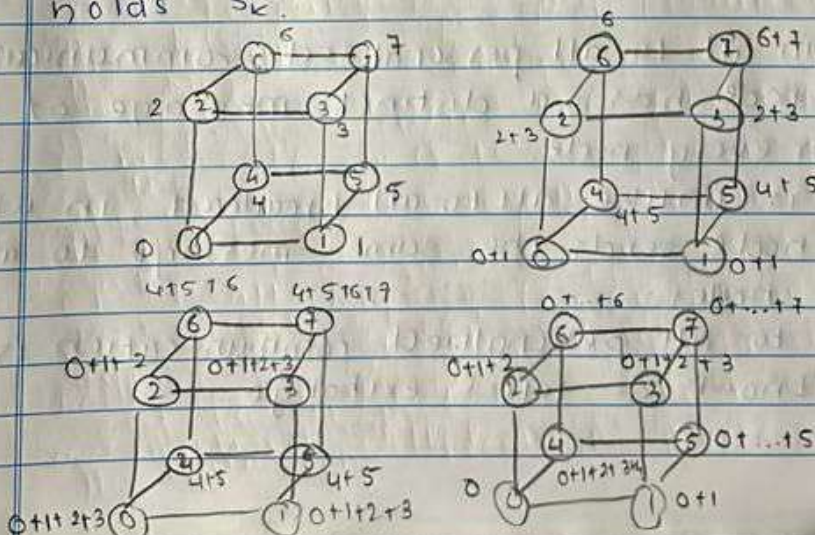 holds Sk.
6 7
6
2 2 3
3
4 5 5
4
0 0 1 1
6
6 7 6+7
2 3 2+3
2+3
4 5 4+5
4+5
0+1 0 1 0+1
4+5+6 4+5+6+7
6 7
0+1+2 0+1+2+3
2 3
4 5
4+5 4+5
0+1+2+3 0 1 0+1+2+3
0+...+6 0+...+7
6 7
0+1+2 0+1+2+3
2 3
4 5 0+...+5
0+1+2+3+4
0 0 1 0+1